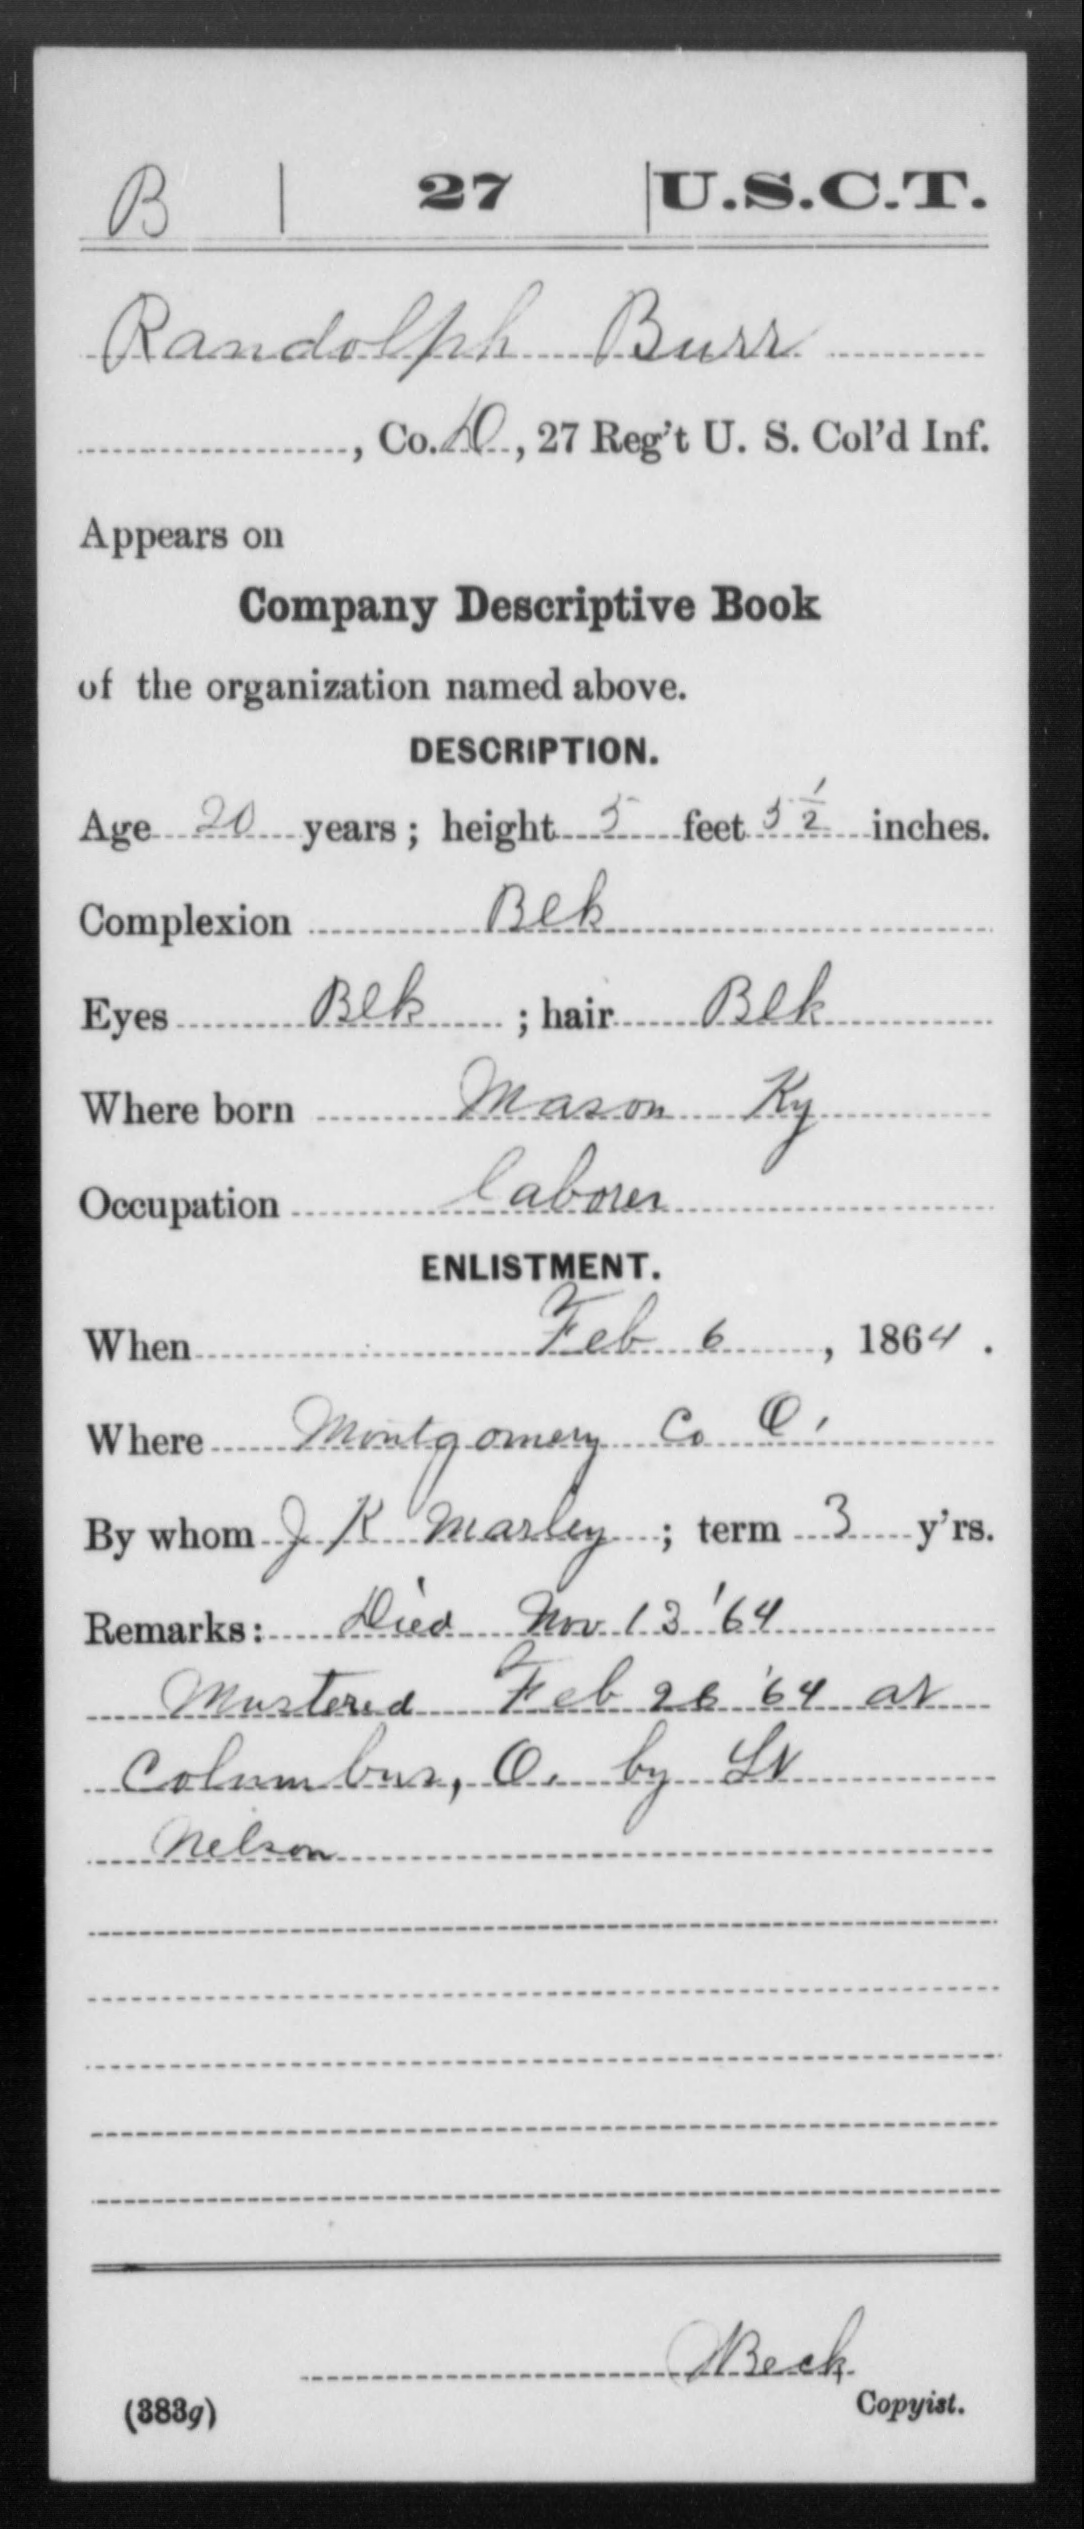 B | 27 | U.S.C.T.
Randolph Burr
, Co. D, 27 Reg't U. S. Col'd Inf.
Appears on
Company Descriptive Book
of the organization named above.
DESCRIPTION.
Age 20 years; height 5 feet 3 1/2 inches.
Complexion Blk
Eyes Blk ; hair Blk
Where born Mason Ky
Occupation laborer
ENLISTMENT.
When Feb 6, 1864.
Where Montgomery Co O.
By whom J K Marley; term 3 y'rs.
Remarks: Died Nov 13 '64
Mustered Feb 26 '64 at
Columbus, O. by Lt
Nelson
Beck
(383g) Copyist.